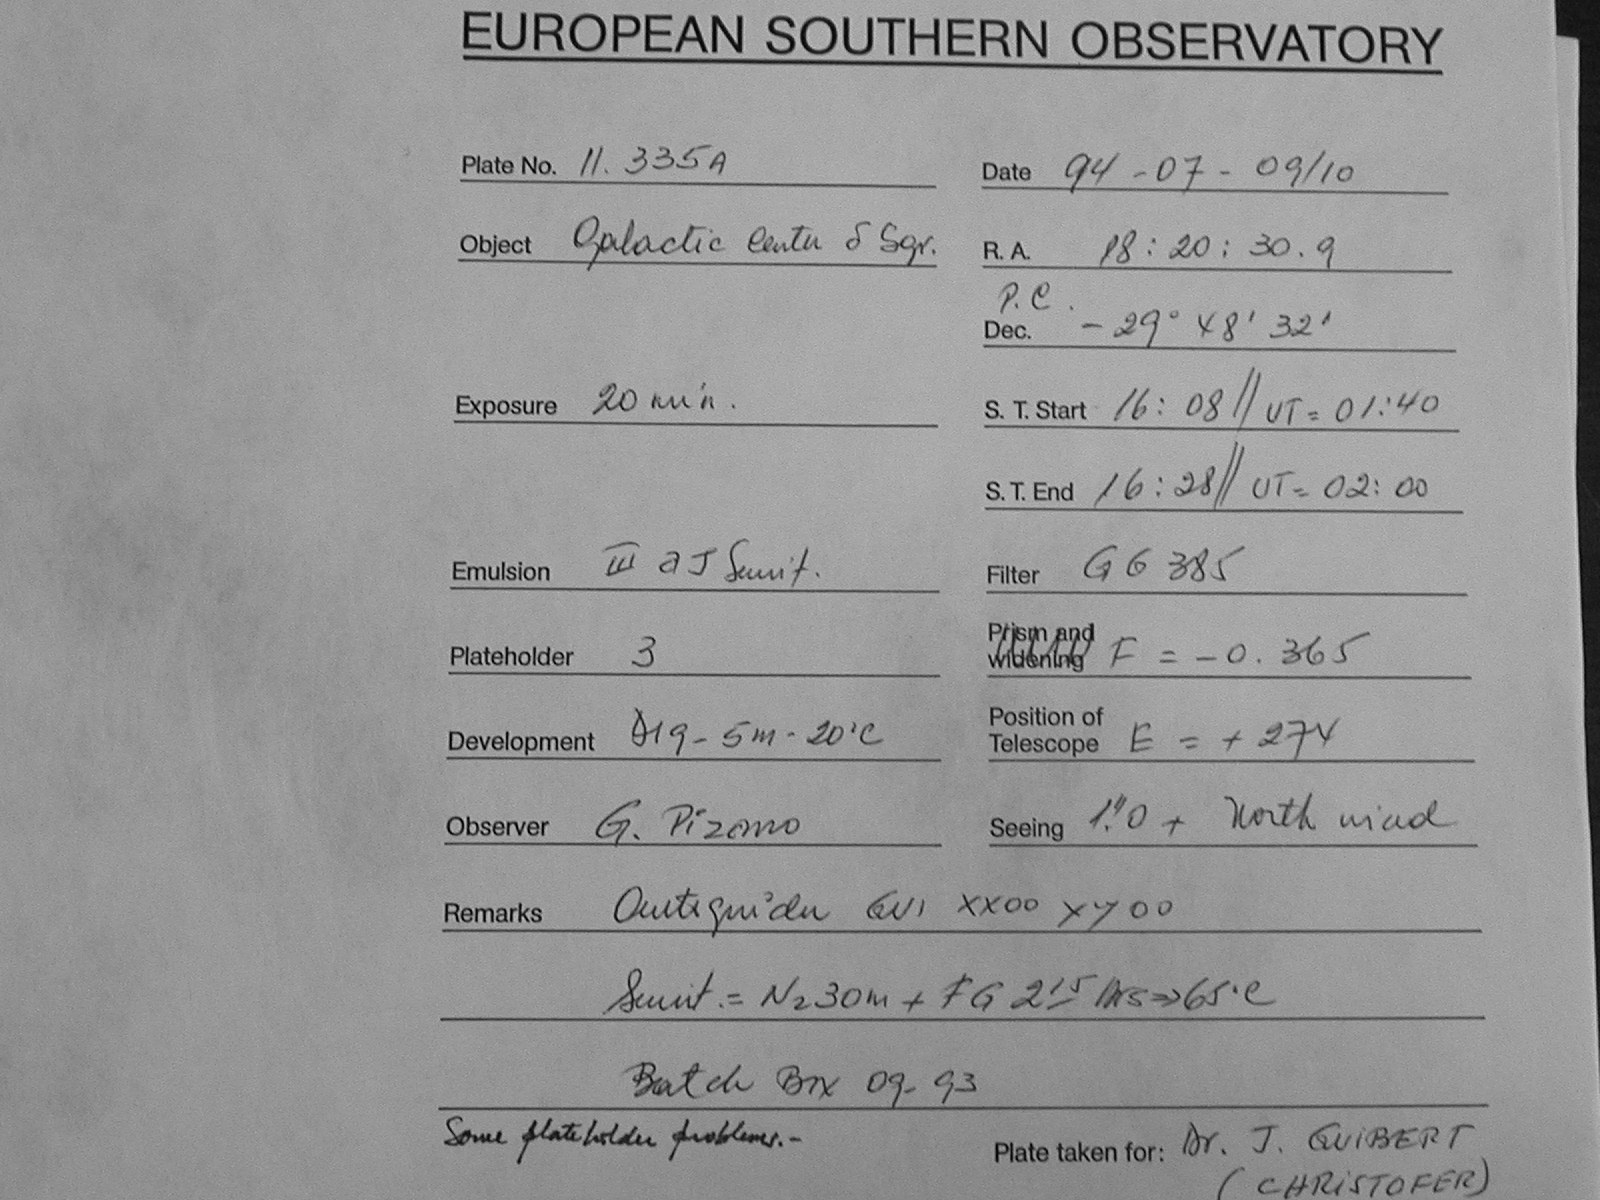 EUROPEAN SOUTHERN OBSERVATORY
Plate No. 11.335A
Date 94-07-09/10
Object Galactic Center δ Sgr.
R. A. 18:20:30.9
P.C.
Dec. -29° 48' 32'
Exposure 20 min.
S. T. Start 16:08 // UT = 01:40
S. T. End 16:28 // UT = 02:00
Emulsion III a J Sensit.
Filter GG 385
Plateholder 3
Prism and
widening F = -0.365
Development D19 - 5m - 20°C
Position of
Telescope E = + 274
Observer G. Pizarro
Seeing 1".0 + North wind
Remarks Autoguider GV1 XX00 XY00
Sensit. = N2 30m + FG 2h5 hrs => 65°C
Batch Box 09-93
Some plateholder problems.-
Plate taken for: Dr. J. GUIBERT
(CHRISTOFER)